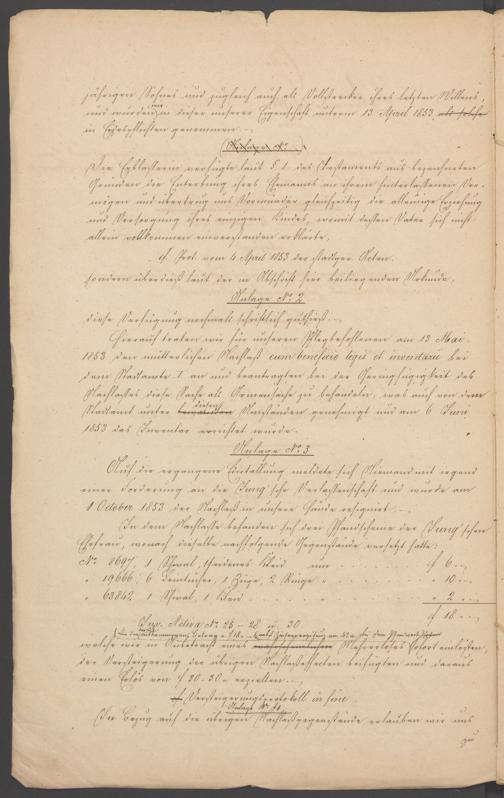 jährigen Sohnes und zugleich auch als Vollstrecker ihres letzten Willens,
und wurden in dieser unserer Eigenschaft unterm 13 April 1853 als solche
in Eidespflichten genommen.
Anlage No 1
Die Erblasserin verfügte laut § 1 des Testaments aus bezeichneten
Gründen die Enterbung ihres Ehemanns an ihrem hinterlassenen Ver-
mögen und übertrug uns Vormünder gleichzeitig die alleinige Erziehung
und Versorgung ihres einzigen Kindes, womit dessen Vater sich nicht
allein vollkommen einverstanden erklärte,
cf. Prot. vom 4 April 1853 der Acten.
sondern überdieß laut der in Abschrift hier beiliegenden Urkunde,
Anlage No 2
diese Verfügung nochmals schriftlich guthieß.
Hierauf traten wir für unseren Pflegbefohlenen am 13 Mai
1853 den mütterlichen Nachlaß cum beneficio legis et inventarii bei
dem Stadtamte I an und beantragten bei der Geringfügigkeit des
Nachlasses diese Sache als Armensache zu behandeln, was auch von dem
Stadtamt unter diesen Umständen genehmigt und am 6 Juni
1853 das Inventar errichtet wurde.
Anlage No 3
Auf die ergangene Edictalladung meldete sich Niemand mit irgend
einer Forderung an die Jung'sche Verlassenschaft und wurde am
1 October 1853 der Nachlaß in unsere Hände resignirt.
In dem Nachlasse befanden sich drei Pfandscheine der Jung'schen
Ehefrau, wonach dieselbe nachfolgende Gegenstände versetzt hatte:
No 8697, 1 Shwal, seidenes Kleid um f 6 "
" 19666, 6 Leintücher, 1 Züge, 2 Ringe " " 10 "
" 63842 1 Shwal, 1 Kleid " " 2 "
f 18 "
Inv. Activa No 25 - 28 u. 30
welche wir in Anbetracht eines Mehrerlöses sofort einlösten,
der Versteigerung der übrigen Nachlaßeffecten beifügten und daraus
einen Erlös von f 30.30 erzielten.
cf Versteigerungsprotokoll in fine.
Anlage No
In Bezug auf die übrigen Nachlaßgegenstände erlauben wir uns
zu